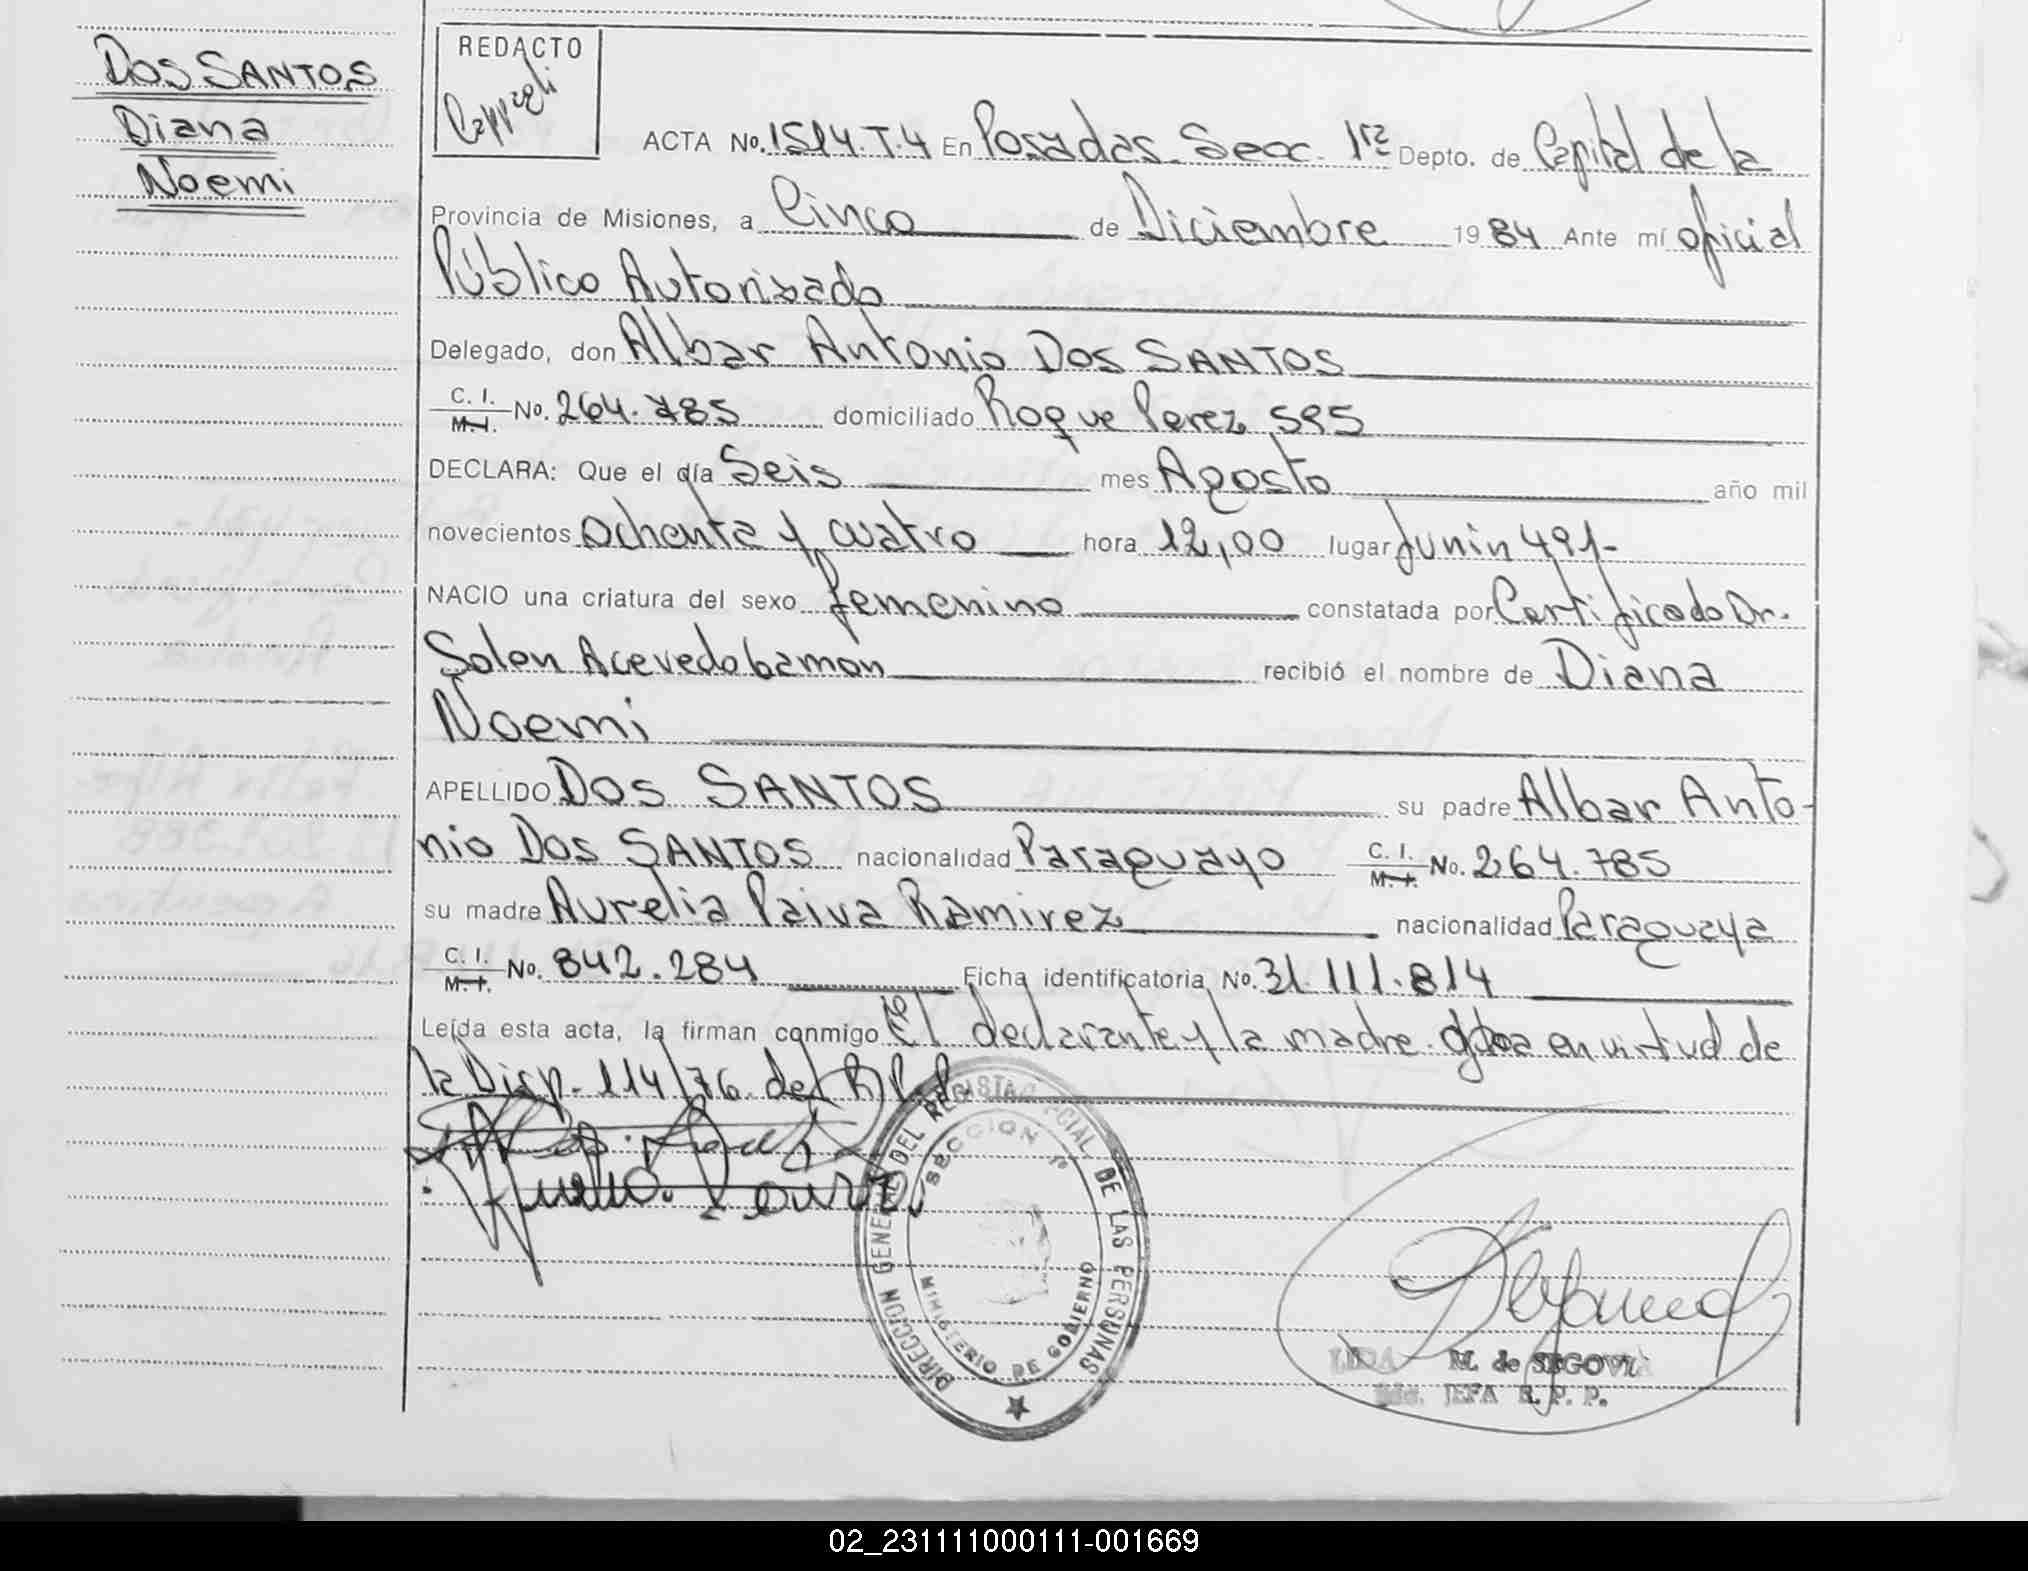 DOS SANTOS
Diana
Noemi
REDACTO
ACTA No. 1514.T.4 En Posadas. Secc. 1ra Depto. de Capital de la
Provincia de Misiones, a Cinco de Diciembre 1984 Ante mí oficial
Público Autorizado
Delegado, don Albar Antonio DOS SANTOS
C. I. M. I. No. 264.785 domiciliado Roque Perez 595
DECLARA: Que el día Seis mes Agosto año mil
novecientos ochenta y cuatro hora 12,00 lugar Junin 491-
NACIO una criatura del sexo femenino constatada por Certificado Dr.
Solon Acevedo recibió el nombre de Diana
Noemi
APELLIDO DOS SANTOS su padre Albar Anto-
nio DOS SANTOS nacionalidad Paraguayo C. I. M. I. No. 264.785
su madre Aurelia Paiva Ramirez nacionalidad Paraguaya
C. I. M. I. No. 842.284 Ficha identificatoria No. 31.111.814
Leída esta acta, la firman conmigo el declarante y la madre. en virtud de
la Disp. 114/76. del R.P.P.
DIRECCION GENERAL DEL REGISTRO PROVINCIAL DE LAS PERSONAS
SECCION 1ª
MINISTERIO DE GOBIERNO
LIDA M. de SEGOVIA
JEFA R. P. P.
02_231111000111-001669